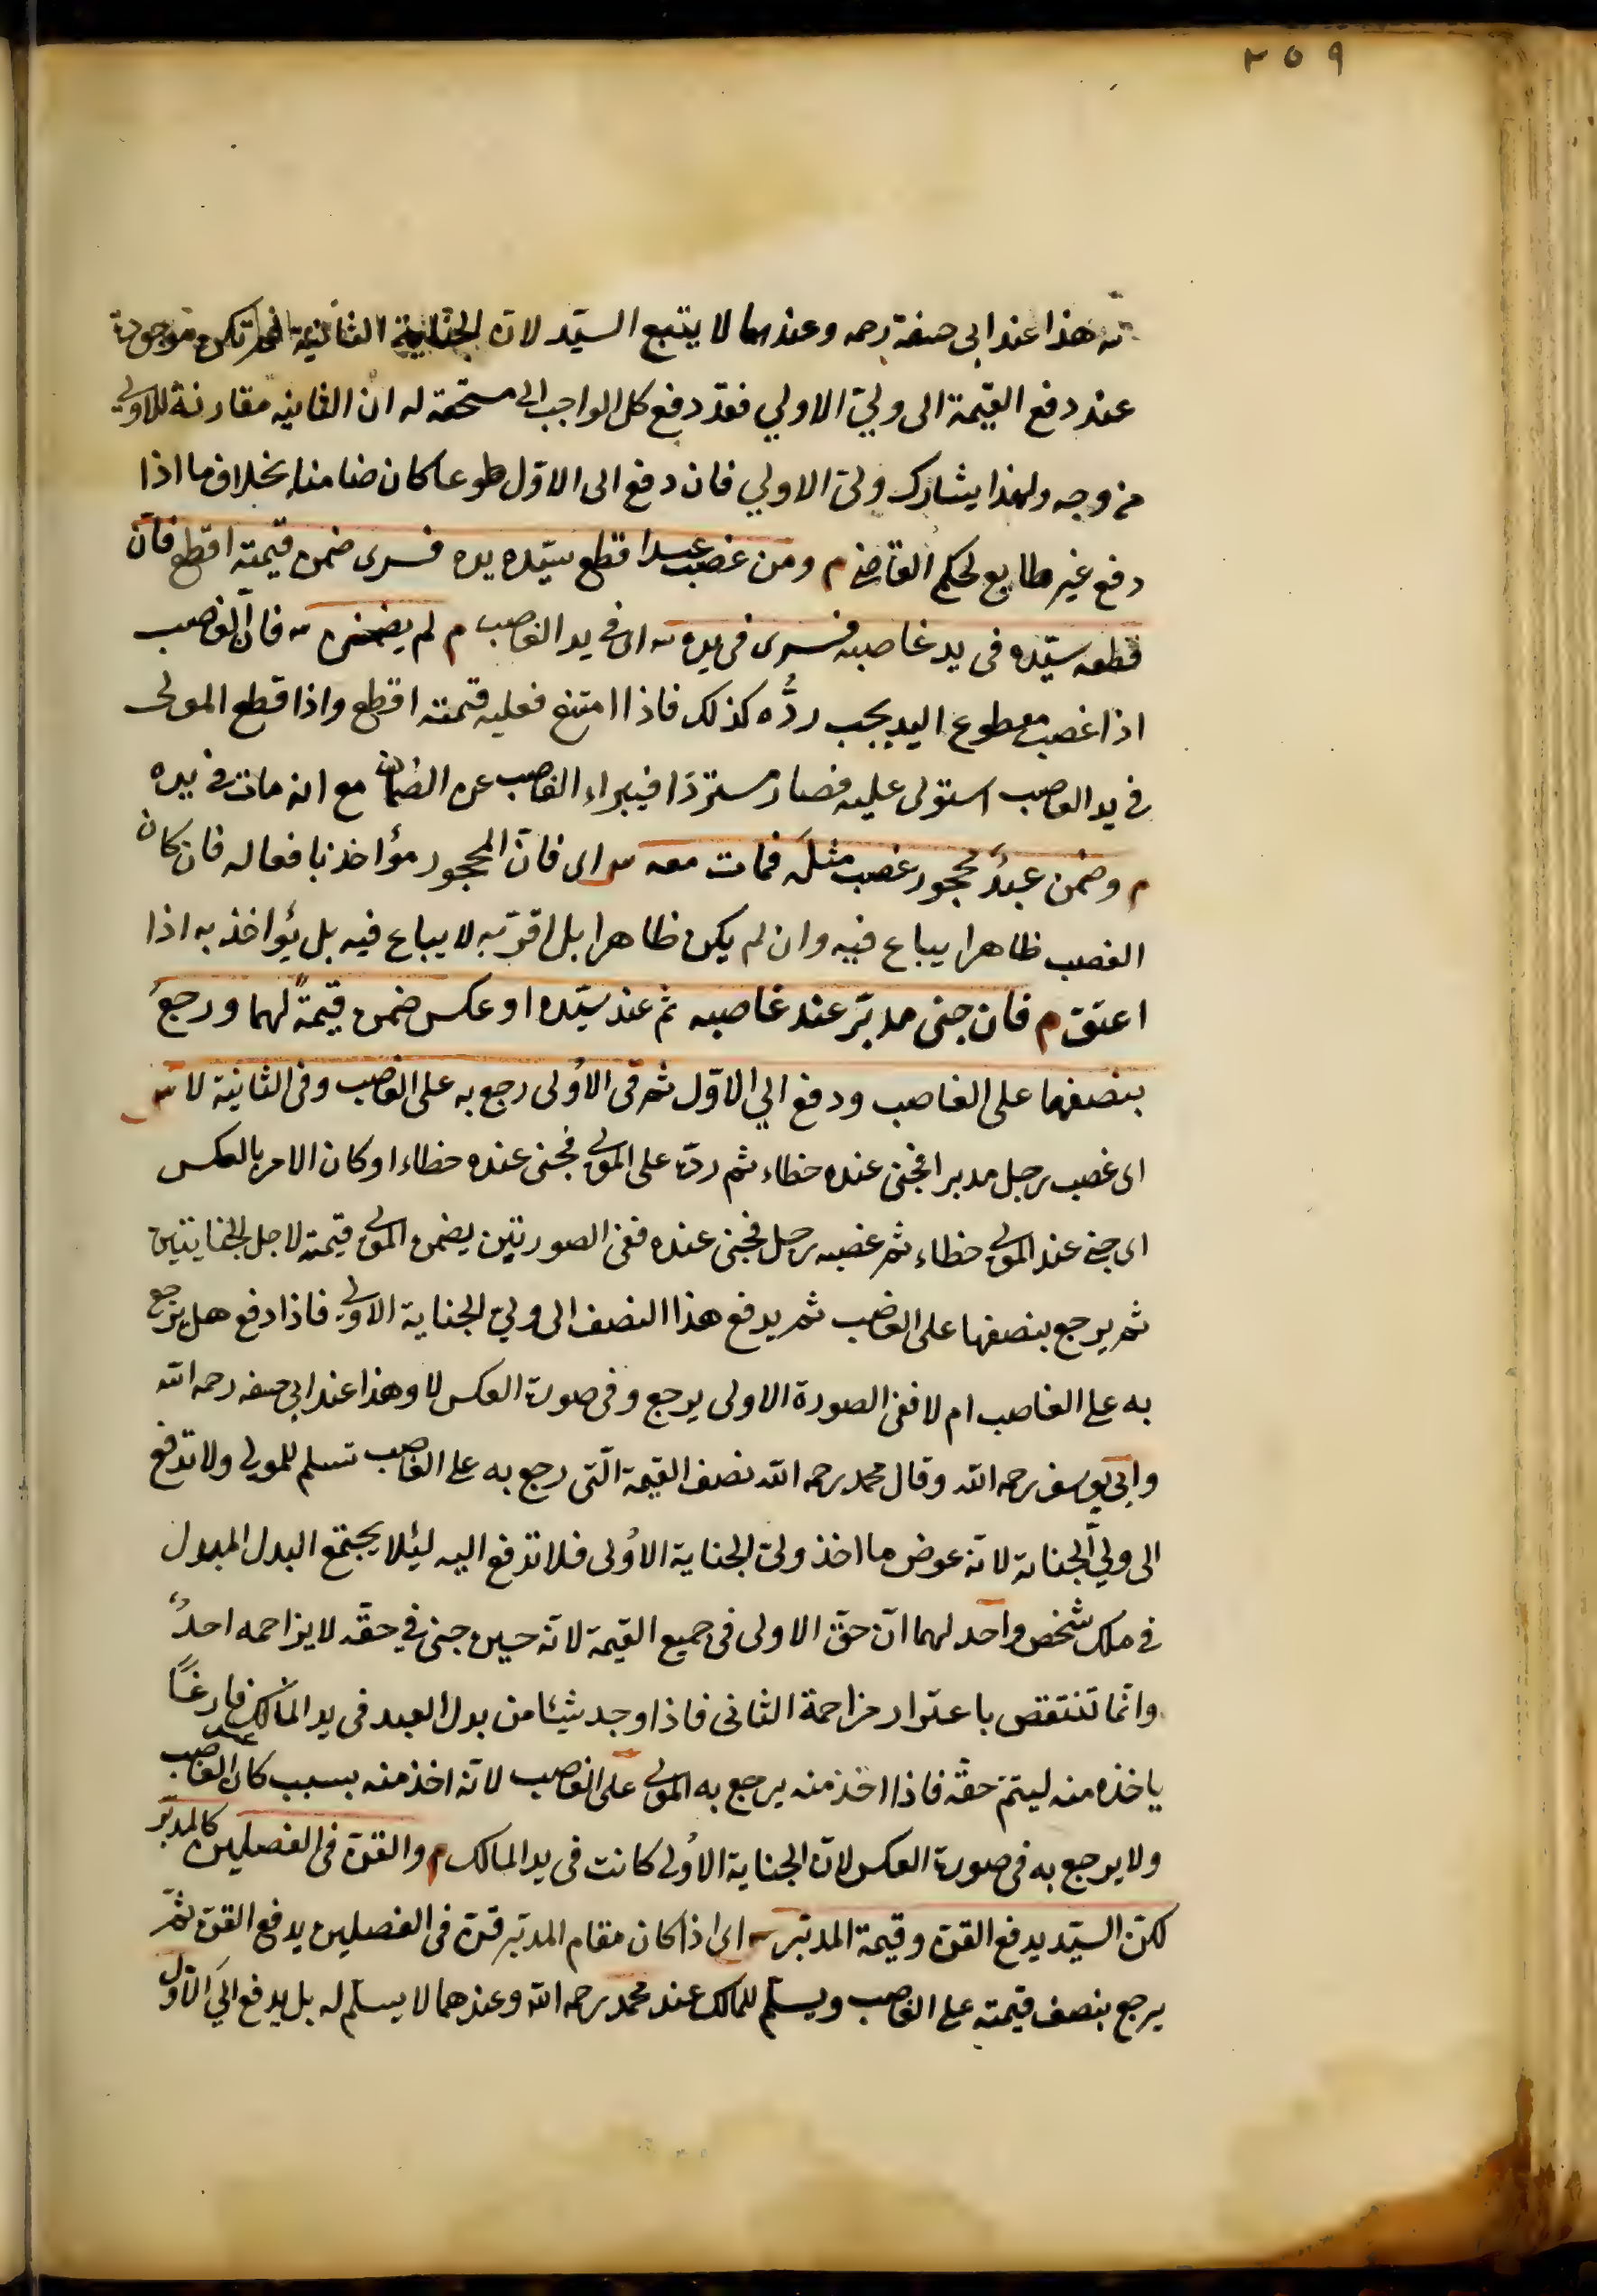 ٢٥٩
ش هذا عند ابى حنيفة رحمه وعندهما لا يتبع السيّد لانّ الجناية الثانية لم تكن موجودة
عند دفع القيمة الى وليّ الاولي فقد دفع كل الواجب الى مستحقه له ان الثانيه مقارنة للاولى
من وجه ولهذا يشارك ولىّ الاولي فان دفع الى الاوّل طوعا كان ضامنا بخلاف ما اذا
دفع غير طايع لحكم القاضى م ومن غصب عبدا قطع سيّده يده فسرى ضمن قيمته اقطع فان
قطعه سيّده فى يد غاصبه فسرى فى يده ش اى فى يد الغاصب م لم يضمن ش فانّ الغاصب
اذا غصب مقطوع اليد يجب ردُّه كذلك فاذا امتنع فعليه قيمته اقطع واذا قطع المولى
فى يد الغاصب استولى عليه فصار مستردّا فيبراء الغاصب عن الضمان مع انه مات فى يده
م وضمن عبدٌ محجور غصب مثلَه فمات معه ش اى فانّ المحجور مؤاخذ بافعاله فان كان
الغصب ظاهرا يباع فيه وان لم يكن ظاهرا بل اقرّ به لا يباع فيه بل يؤاخذ به اذا
اعتق م فان جنى مدبّر عند غاصبه ثم عند سيّده او عكس ضمن قيمةً لهما ورجع
بنصفها على الغاصب ودفع الي الاوّل ثم فى الاُولى رجع به على الغاصب وفى الثانية لا ش
اى غصب رجل مدبرا فجنى عنده خطاء ثم ردّه على المولى فجنى عنده خطاء او كان الامر بالعكس
اى جنى عند المولى خطاء ثم غصبه رجل فجنى عنده ففى الصورتين يضمن المولى قيمته لاجل الجنايتين
ثم يرجع بنصفها على الغاصب ثم يدفع هذا النصف الى وليّ الجناية الاولى فاذا دفع هل يرجع
به على الغاصب ام لا ففى الصورة الاولى يرجع وفى صورة العكس لا وهذا عند ابى حنيفه رحمه الله
وابي يوسف رحمه الله وقال محمد رحمه الله نصف القيمة الّتى رجع به على الغاصب تسلم للمولى ولا تدفع
الى وليّ الجناية لانّه عوض ما اخذ ولىّ الجناية الاُولى فلا تدفع اليه ليئلا يجتمع البدل المبدول
فى ملك شخص واحد لهما انّ حقّ الاولى فى جميع القيمة لانّه حين جنى في حقّه لا يزاحمه احدٌ
وانّما تنتقص باعتبار مزاحمة الثانى فاذا وجد شيئا من بدل العبد فى يد المالك فارغًا
ياخذه منه ليتمّ حقّه فاذا اخذ منه يرجع به المولى على الغاصب لانّه اخذ منه بسبب كان الغاصب
ولا يرجع به فى صورة العكس لانّ الجناية الاُولى كانت فى يد المالك م والقنّ فى الفصلين كالمدبّر
لكنّ السيّد يدفع القنّ وقيمة المدبّر ش اى اذا كان مقام المدبّر قنّ فى الفصلين يدفع القنّ ثمّ
يرجع بنصف قيمته على الغاصب ويسلّم للمالك عند محمد رحمه الله وعندهما لا يسلّم له بل يدفع الَى الاوّل